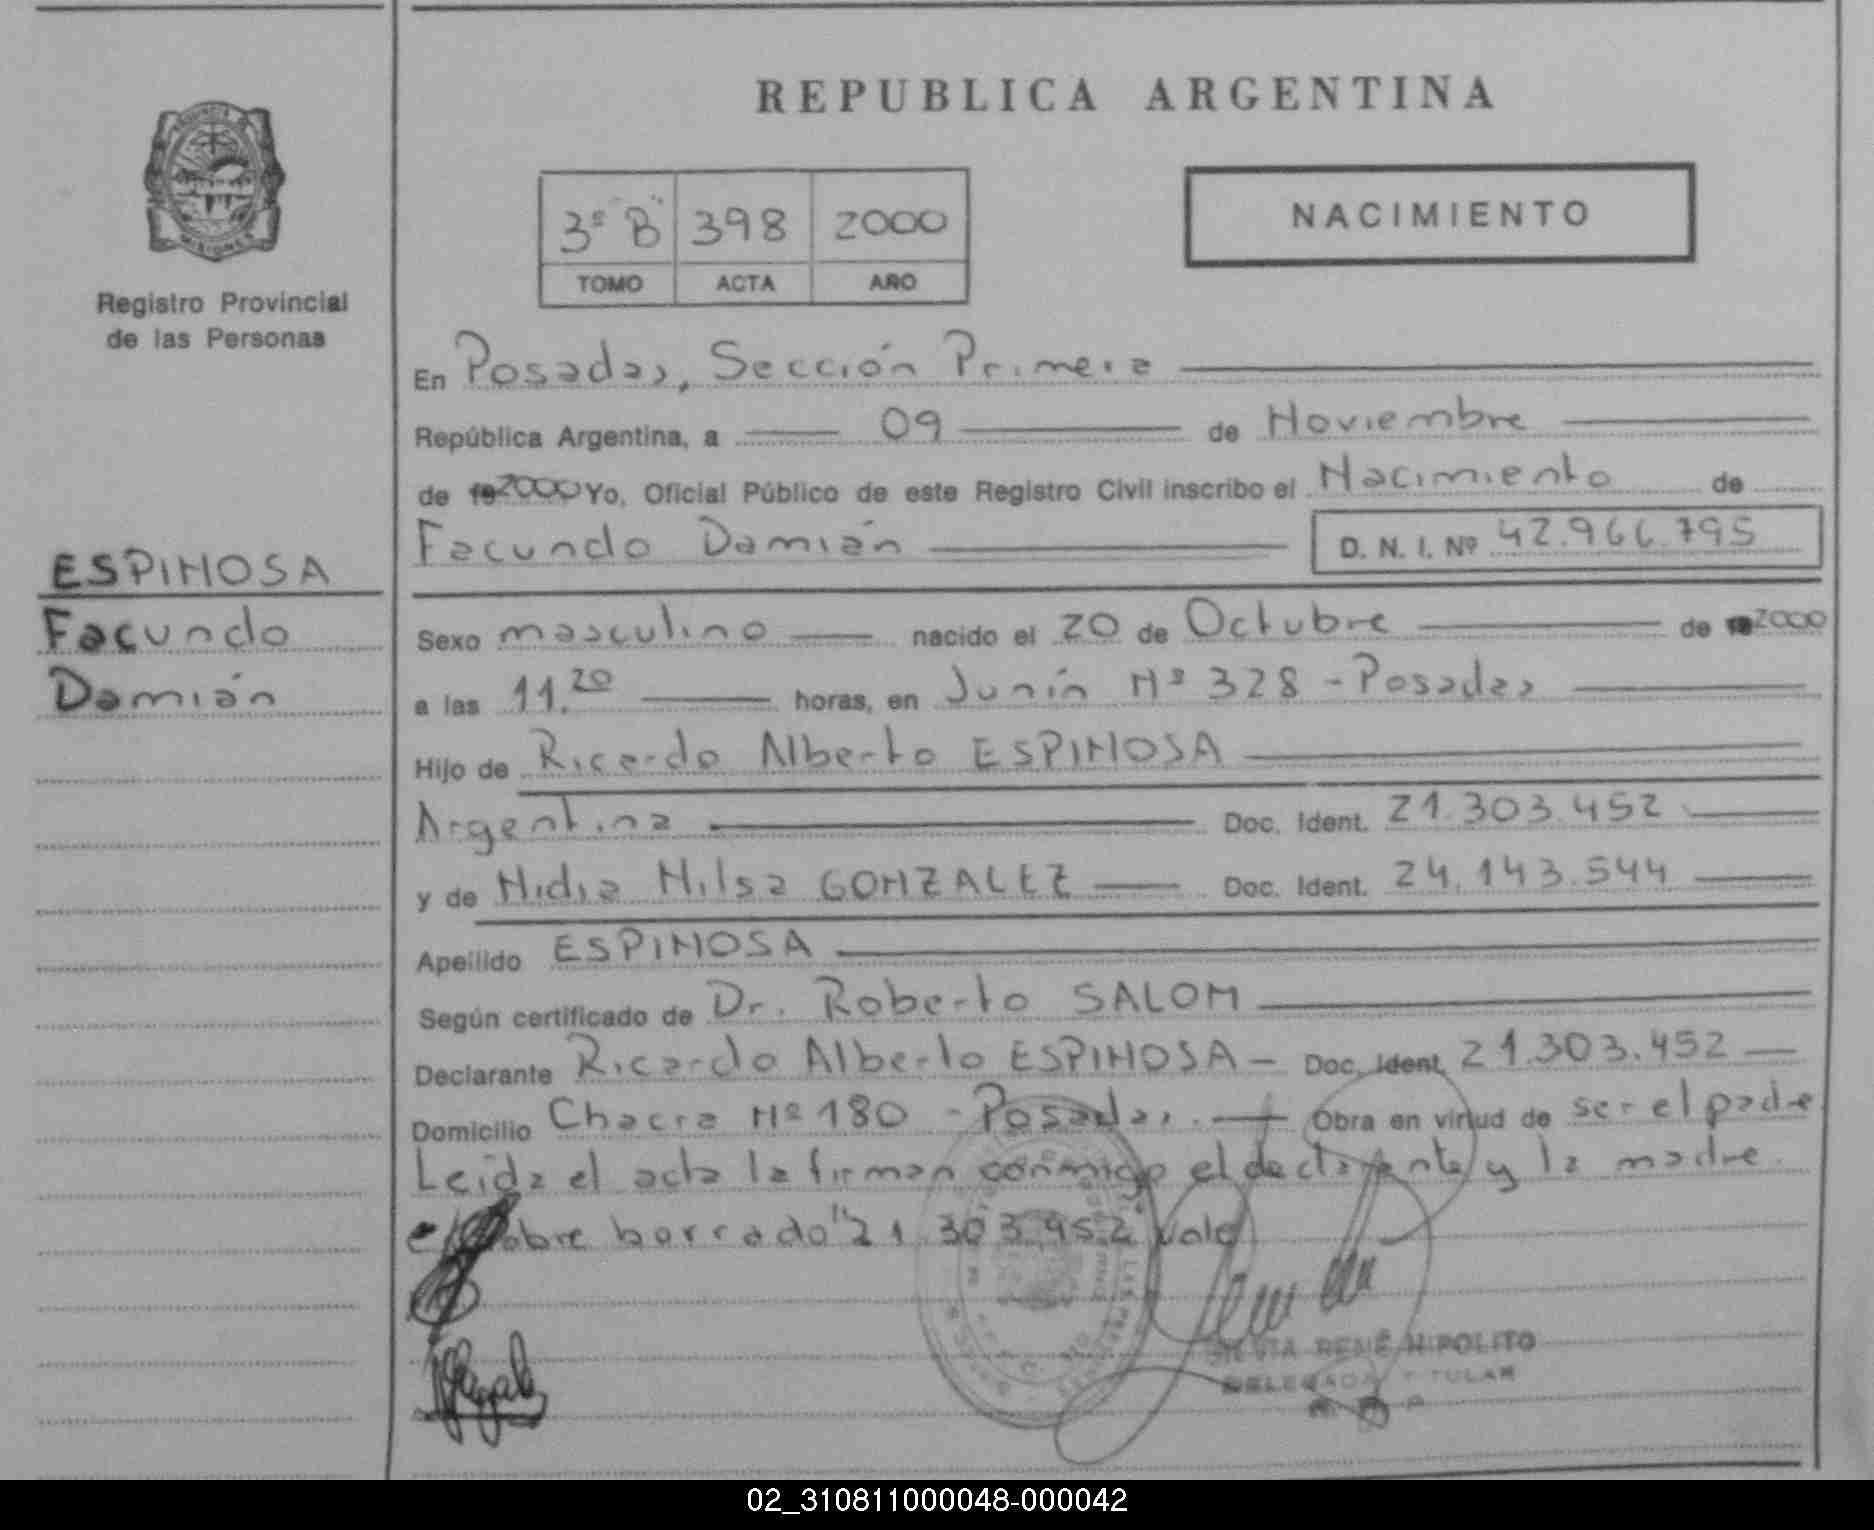 REPUBLICA ARGENTINA
3º "B" 398 2000
TOMO ACTA AÑO
NACIMIENTO
MISIONES
Registro Provincial
de las Personas
ESPINOSA
Facundo
Damián
En Posadas, Sección Primera
República Argentina, a 09 de Noviembre
de 19 2000 Yo, Oficial Público de este Registro Civil inscribo el Nacimiento de
Facundo Damián D. N. I. Nº 42.966.795
Sexo masculino nacido el 20 de Octubre de 19 2000
a las 11.20 horas, en Junín Nº 328 - Posadas
Hijo de Ricardo Alberto ESPINOSA
Argentina Doc. Ident. 21.303.452
y de Nidia Nilsa GONZALEZ Doc. Ident. 24.143.544
Apellido ESPINOSA
Según certificado de Dr. Roberto SALOM
Declarante Ricardo Alberto ESPINOSA - Doc. Ident. 21.303.452
Domicilio Chacra Nº 180 - Posadas. Obra en virtud de ser el padre
Leida el acta la firman conmigo el declarante y la madre.
sobre borrado "21.303.452" vale
SILVIA RENÉ HIPOLITO
DELEGADA TITULAR
02_310811000048-000042